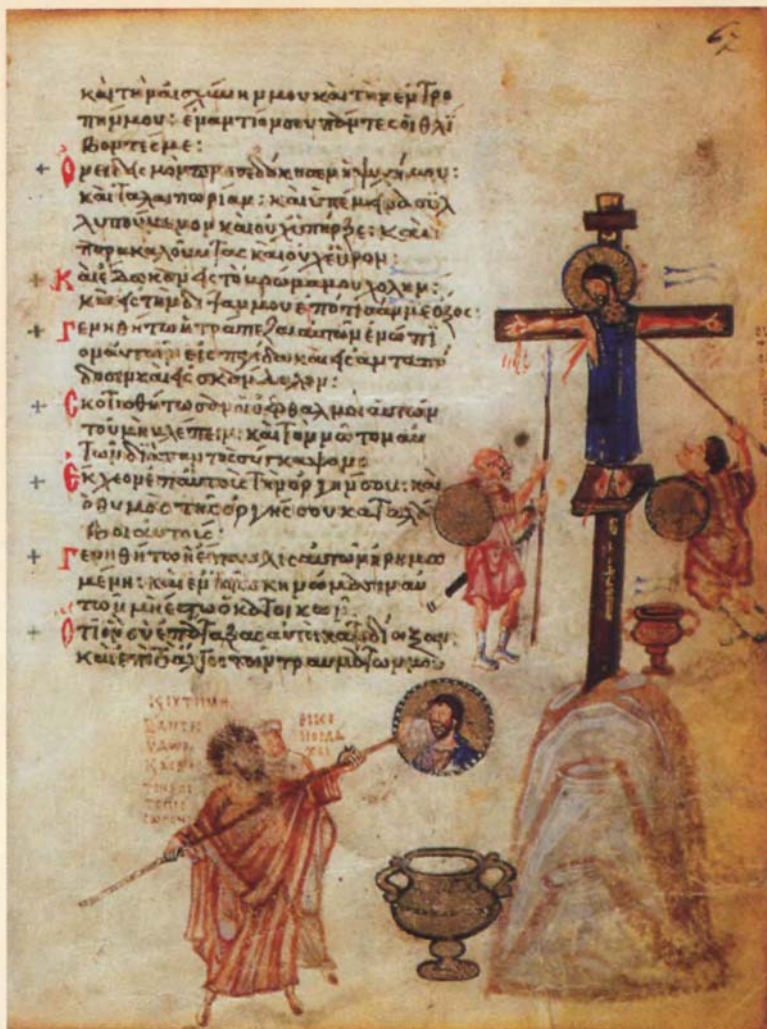 67
καὶ τὴν αἰσχύνην μου καὶ τὴν ἐντρο
πήν μου: ἐναντίον σου πάντες οἱ θλί
βοντές με:
Ὀνειδισμὸν προσεδόκησεν ἡ ψυχή μου:
καὶ ταλαιπωρίαν: καὶ ὑπέμεινα συλ
λυπούμενον καὶ οὐχ ὑπῆρξε: καὶ
παρακαλοῦντας καὶ οὐχ εὗρον:
Καὶ ἔδωκαν εἰς τὸ βρῶμά μου χολήν:
καὶ εἰς τὴν δίψαν μου ἐπότισάν με ὄξος:
Γενηθήτω ἡ τράπεζα αὐτῶν ἐνώπι
ον αὐτῶν εἰς παγίδα καὶ εἰς ἀνταπό
δοσιν καὶ εἰς σκάνδαλον:
Σκοτισθήτωσαν οἱ ὀφθαλμοὶ αὐτῶν
τοῦ μὴ βλέπειν: καὶ τὸν νῶτον αὐ
τῶν διὰ παντὸς σύγκαμψον:
Ἔκχεον ἐπ' αὐτοὺς τὴν ὀργήν σου: καὶ
ὁ θυμὸς τῆς ὀργῆς σου καταλά
βοι αὐτούς:
Γενηθήτω ἡ ἔπαυλις αὐτῶν ἠρημω
μένη: καὶ ἐν τοῖς σκηνώμασιν αὐ
τῶν μὴ ἔστω ὁ κατοικῶν:
Ὅτι ὃν σὺ ἐπάταξας αὐτοὶ κατεδίωξαν:
καὶ ἐπὶ τὸ ἄλγος τῶν τραυμάτων μου